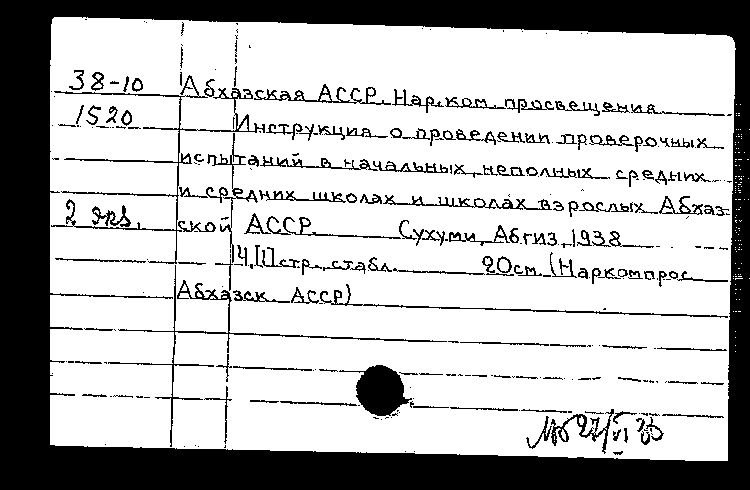 38-10 Абхазская АССР. Нар.ком. просвещения.
1520 Инструкция о проведении проверочных
испытаний в начальных, неполных средних
и средних школах и школах взрослых Абхаз-
2 экз. ской АССР. Сухуми, Абгиз, 1938
14,[1] стр., с табл. 20см. (Наркомпрос
Абхазск. АССР)
27/VI